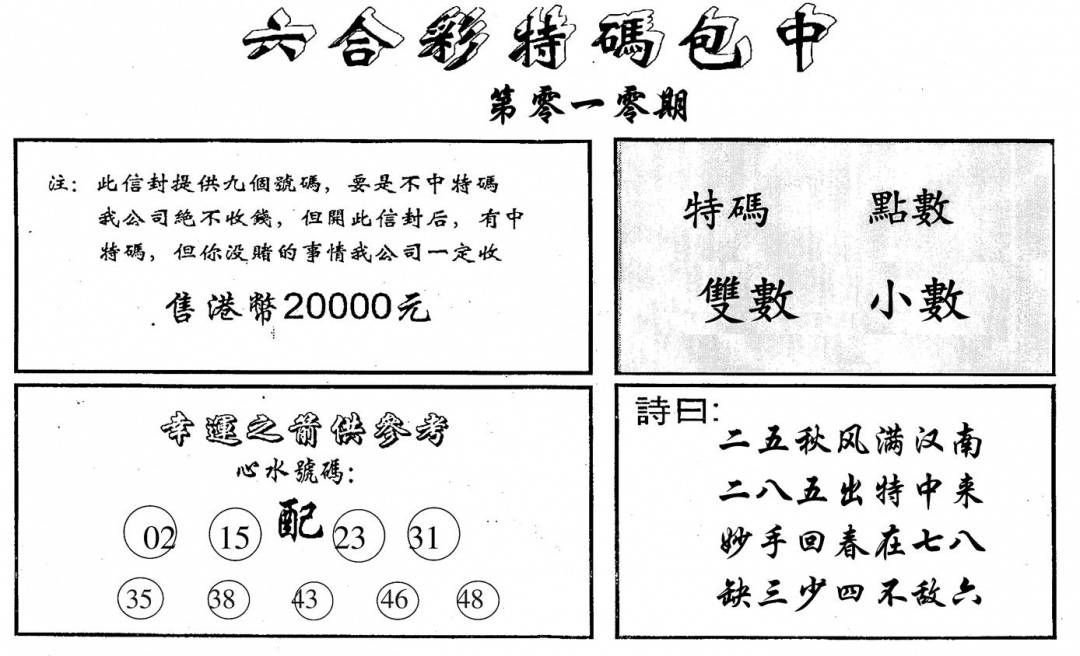 六合彩特碼包中
第零一零期
注：此信封提供九個號碼，要是不中特碼
我公司絕不收錢，但開此信封后，有中
特碼，但你没賭的事情我公司一定收
售港幣20000元
特碼 點數
雙數 小數
幸運之箭供參考
心水號碼：
02 15 配 23 31
35 38 43 46 48
詩曰：
二五秋风满汉南
二八五出特中来
妙手回春在七八
缺三少四不敌六